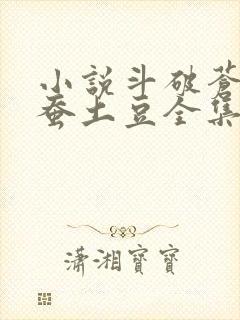 小說斗破蒼
蚕土豆全集
瀟湘寶寶